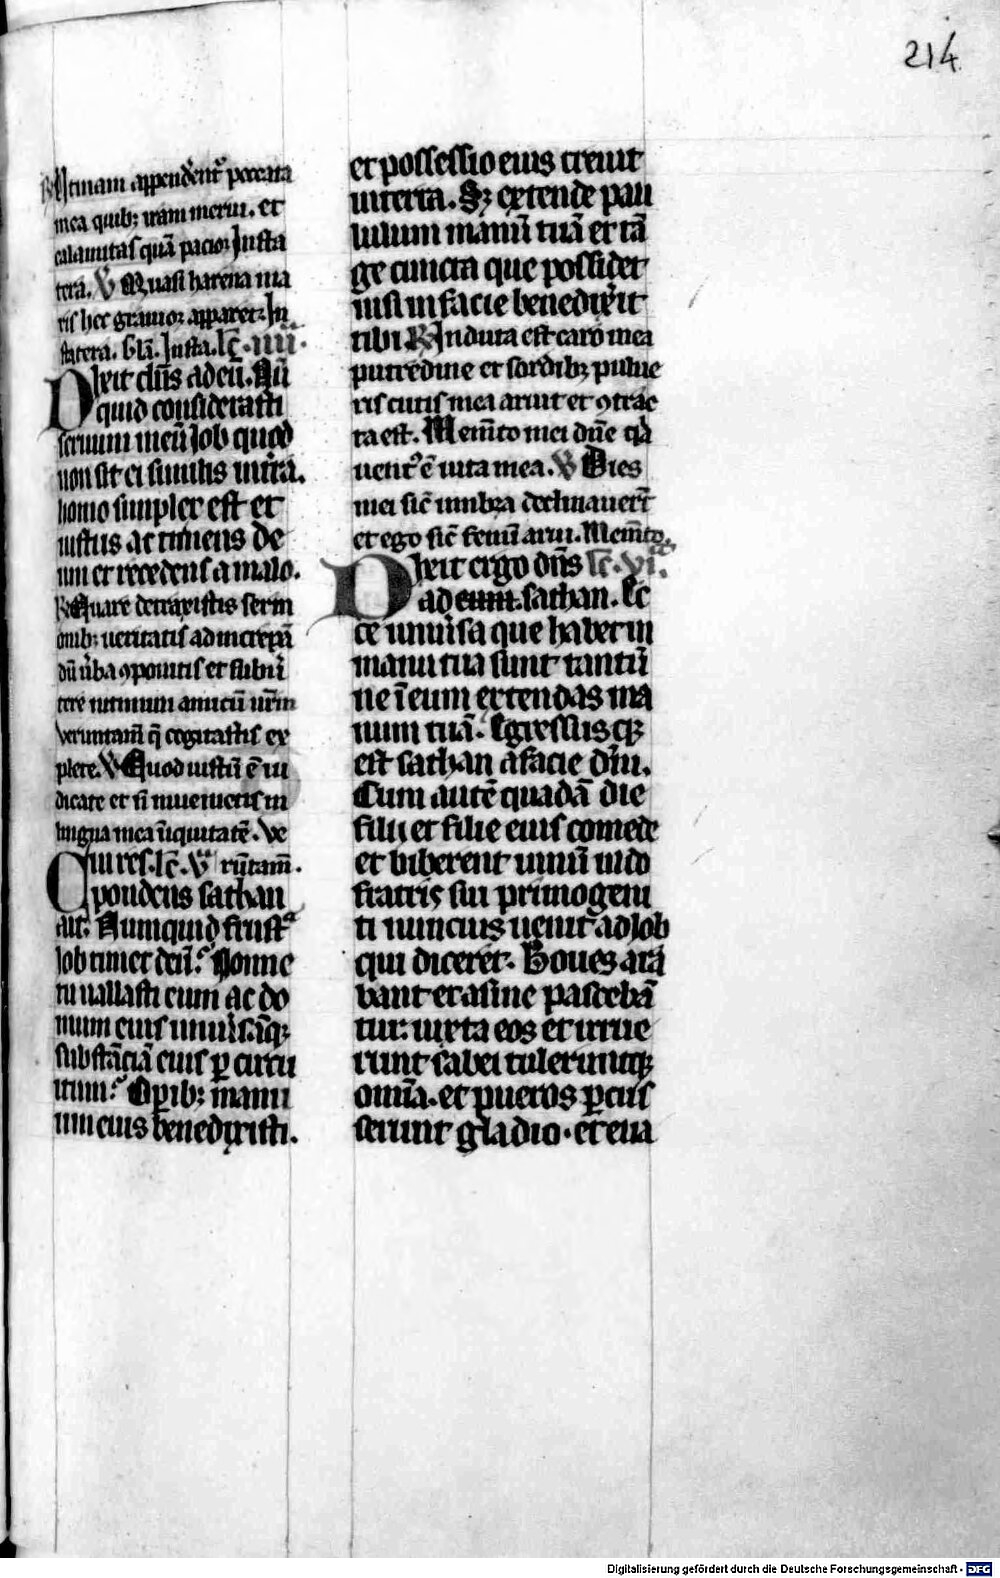 214
℟ Utinam appenderent᷑ peccata
mea quibꝫ iram merui. et
calamitas quā pacior Justa
tera. ℣ Quasi harena ma
ris hec grauior apparet: In
statera. Gl̄a. Justa. lc̄. iiii.
Dixit dn̄s ad eū. Nū
quid considerasti
seruum meū Job quod
non sit ei similis in tr̄a.
homo simplex est et
iustus ac timens de
um et recedens a malo.
℟ Quare detraxistis serm
onibꝫ ueritatis ad increpā
dū ūba ꝯponitis et subū
tere nitimini amicū ur̄m
Veruntam̄ q̄ cogitastis ex
plete. ℣ Quod iustū ē iu
dicate et n̄ inuenietis in
lingua mea iniquitatē. Ve
Cui res. lc̄. v. rūtam̄.
pondens sathan
ait. Numquid frustᵃ
Job timet deū? Nonne
tu uallasti eum ac do
mum eius uniūs. āqꝫ
substāciā eius ꝑ circu
itum? Oꝑibꝫ manu
um eius benedixisti.
et possessio eius creuit
in terra. Sꝫ extende pau
lulum manū tuā et tā
ge cuncta que possidet
nisi in facie benedixerit
tibi ℟ Induta est caro mea
putredine et sordibꝫ pulue
ris cutis mea aruit et ꝯtrac
ta est. Mem̄to mei dn̄e qd̄
uent᷑ ē uita mea. ℣ Dies
mei sic̄ umbra declinauer̄t
et ego sic̄ fenū arui. Mem̄to.
Dixit ergo dn̄s lc̄. vi.
ad eum. sathan. Ec
ce uniūsa que habet in
manu tua sunt tantū
ne ī eum extendas ma
num tuā. Egressusqꝫ
est sathan a facie dn̄i.
Cum autē quadā die
filii et filie eius comede
et biberent uinū in do
fratris sui primogeni
ti nuncius uenit ad Job
qui diceret. Boues ara
bant et asine pascebā
tur: iuxta eos et irrue
runt sabei tuleruntqꝫ
omīa. et pueros ꝑcus
serunt gladio. et eua
Digitalisierung gefördert durch die Deutsche Forschungsgemeinschaft - DFG